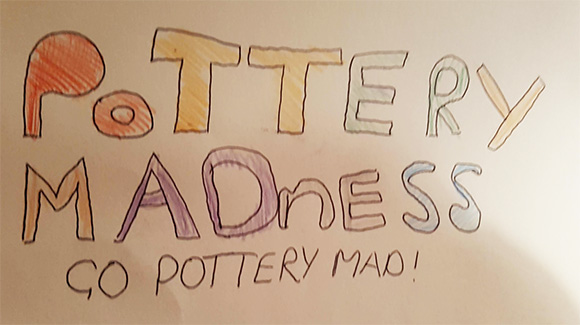 PoTTERY
MADnESS
GO POTTERY MAD!